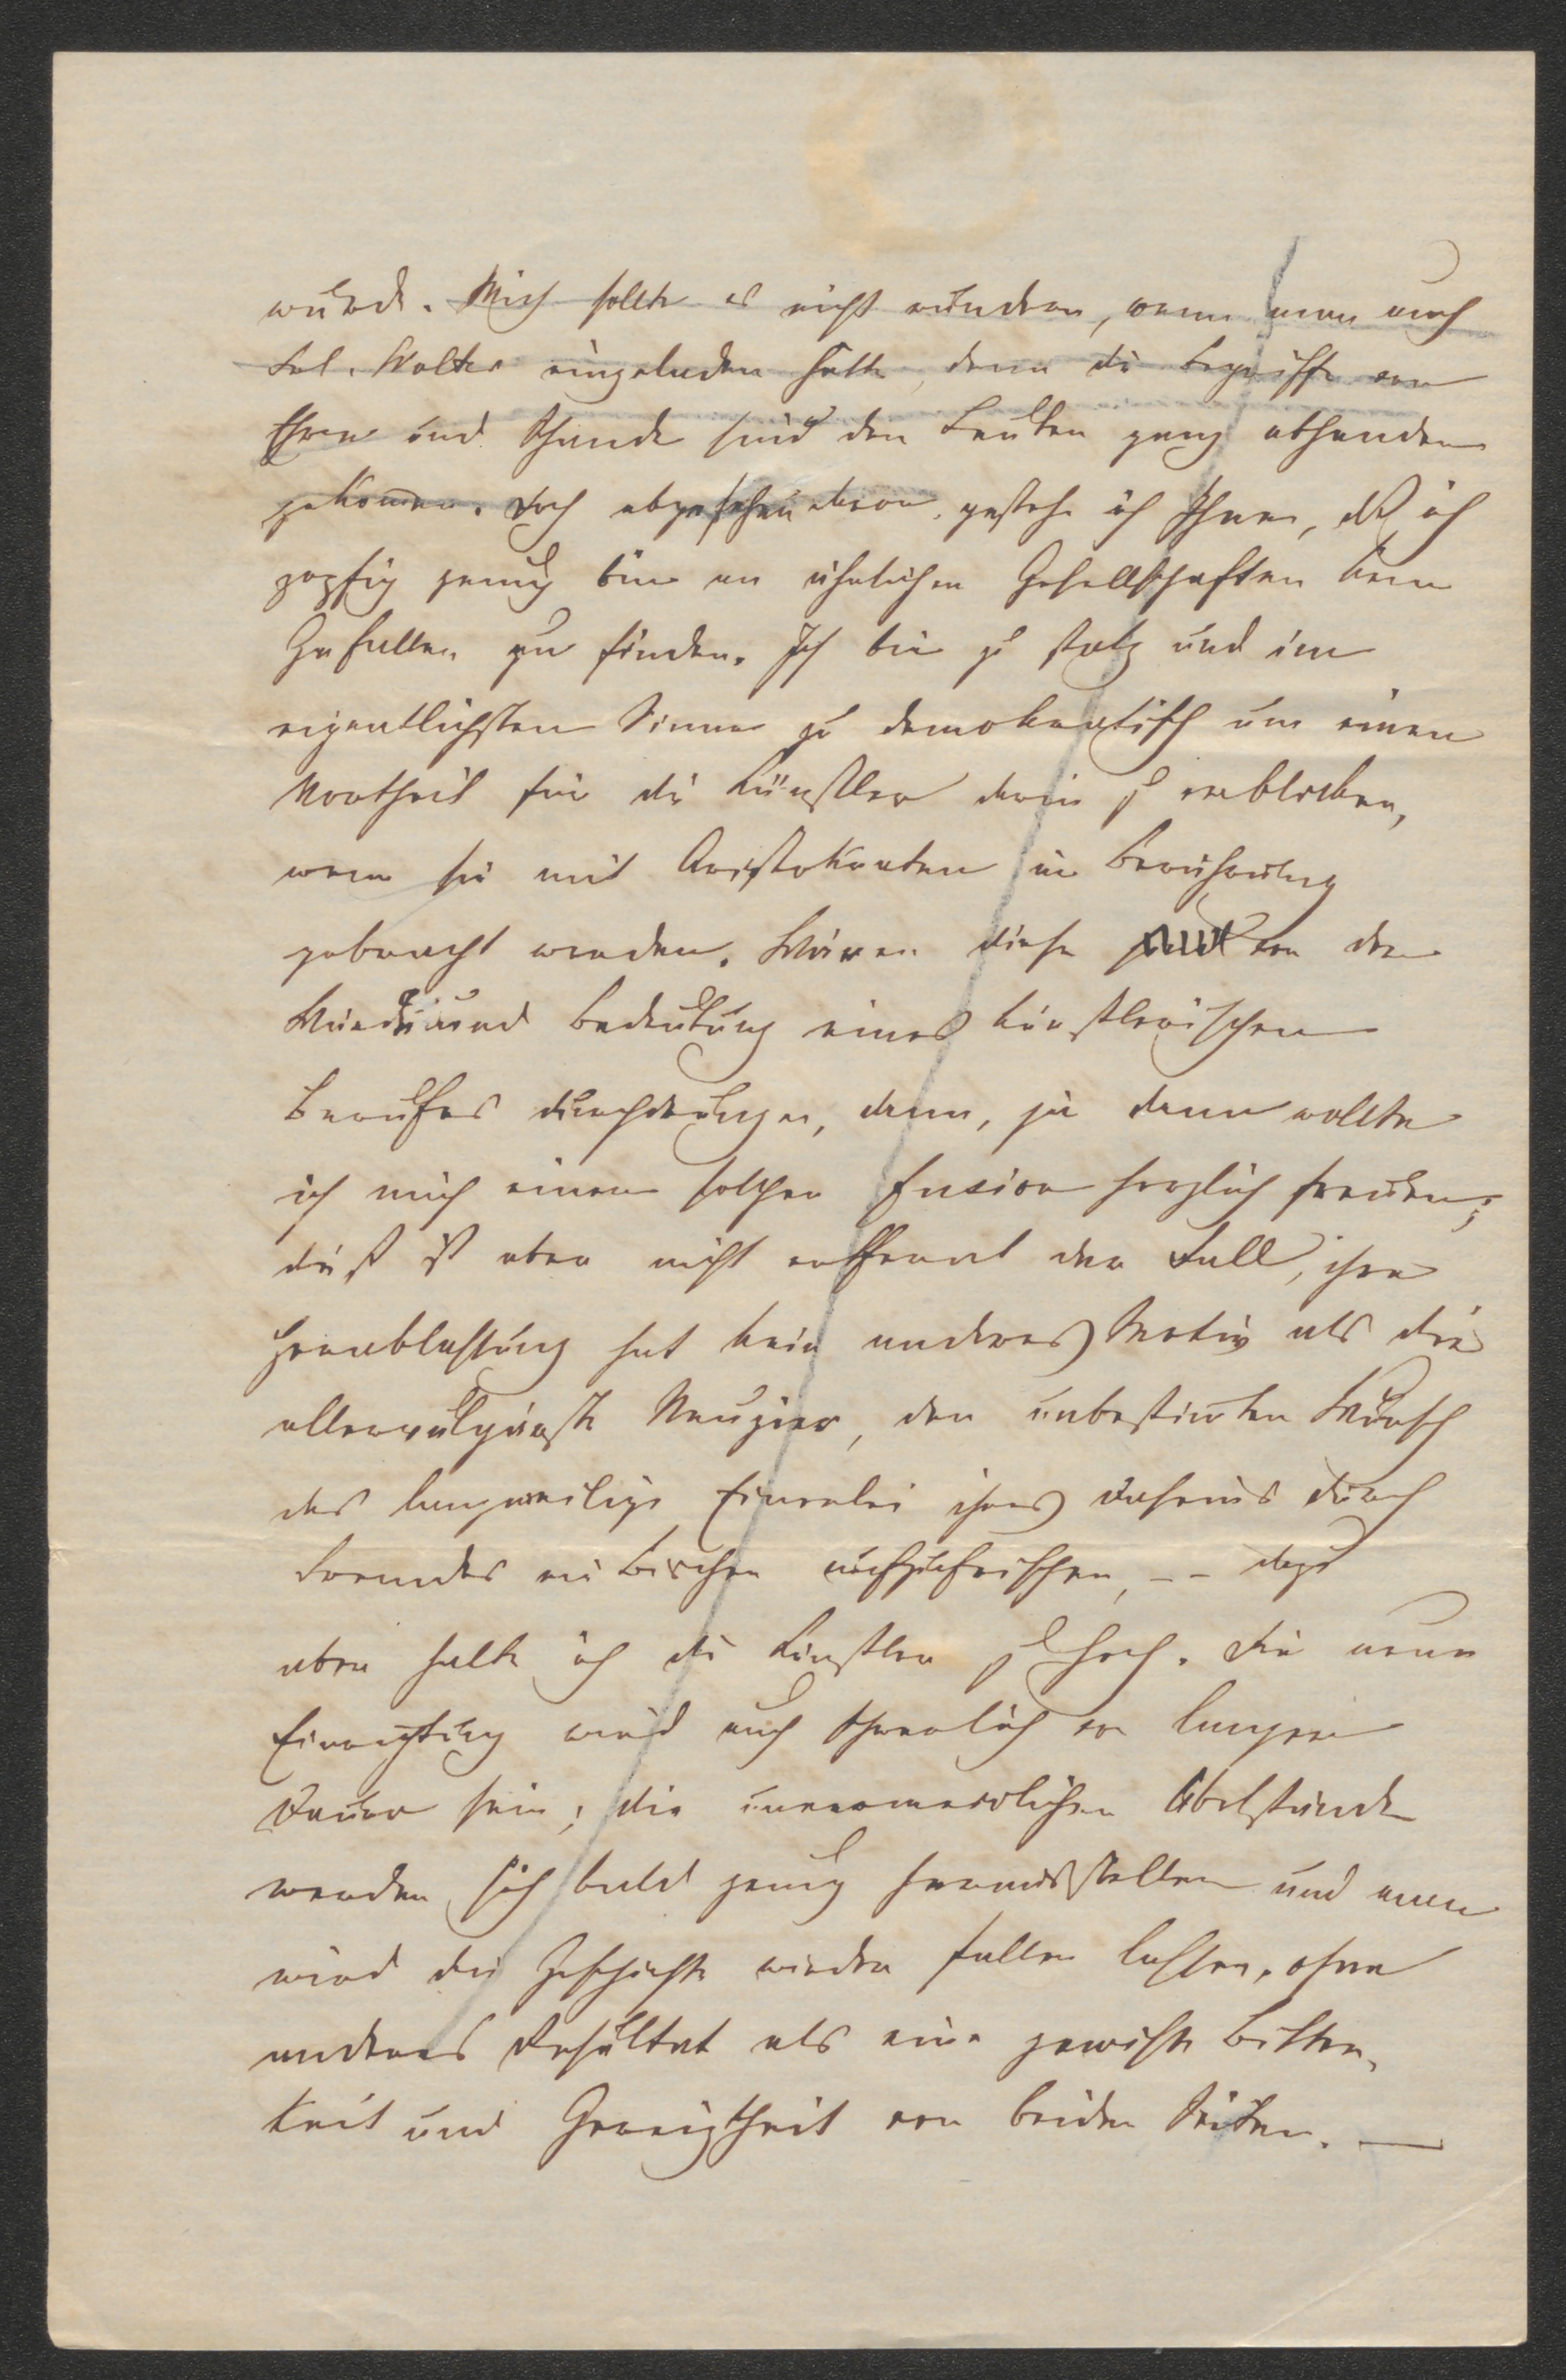 wurde. Mich sollte es nicht wundern, wenn man auch
Frl. Wolter eingeladen hätte, denn die Begriffe von
Ehre und Schande sind den Leuten ganz abhanden
gekomen. Doch abgesehen davon, gestehe ich Ihnen, dß ich
zopfig genug bin an ähnlichen Gesellschaften kein
Gefallen zu finden. Ich bin zu stolz und im
eigentlichsten Sinne zu demokratisch um einen
Vortheil für die Künstler darin zu erblicken,
wenn sie mit Aristokraten in Berührung
gebracht werden. Wären diese von der
Würde und Bedeutung eines künstlerischen
Berufes durchdrungen, dann, ja dann wollte
ich mich einer solchen Fusion herzlich freuen;
dieß ist aber nicht entfernt der Fall, ihre
Herablassung hat kein anderes Motiv als die
allervulgärste Neugier, den unbestimten Wunsch
das langweilige Einerlei ihres Daseins durch
Fremdes ein Bischen aufzufrischen, -- dazu
aber halte ich die Künstler zu hoch. Die neue
Einrichtung wird auch schwerlich von langer
Dauer sein; die unvermeidlichen Übelstände
werden sich bald genug herausstellen und man
wird die Geschichte wieder fallen lassen, ohne
anderes Resultat als eine gewisse Bitter-
keit und Gereiztheit von beiden Seiten. —